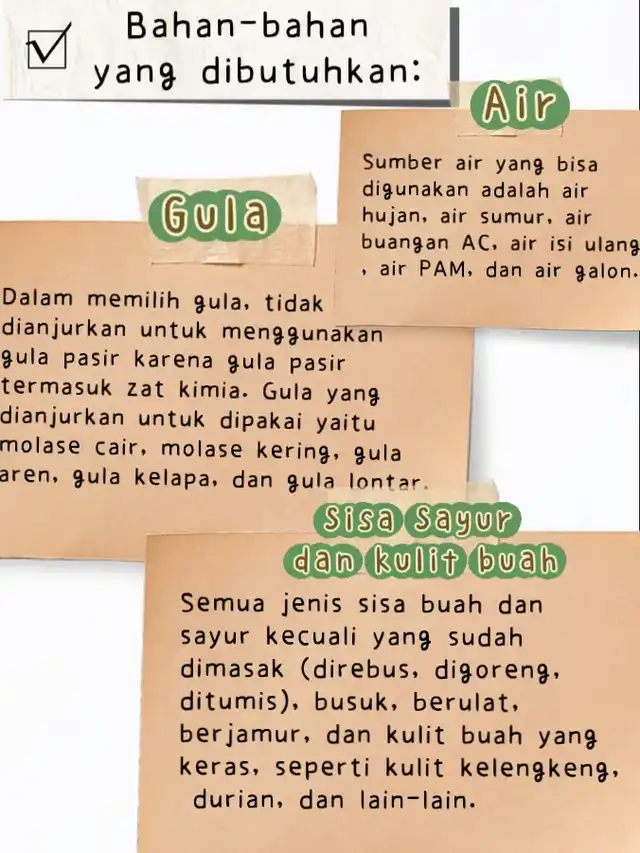 Bahan-bahan
yang dibutuhkan:
Air
Sumber air yang bisa
digunakan adalah air
hujan, air sumur, air
buangan AC, air isi ulang
, air PAM, dan air galon.
Gula
Dalam memilih gula, tidak
dianjurkan untuk menggunakan
gula pasir karena gula pasir
termasuk zat kimia. Gula yang
dianjurkan untuk dipakai yaitu
molase cair, molase kering, gula
aren, gula kelapa, dan gula lontar.
Sisa Sayur
dan kulit buah
Semua jenis sisa buah dan
sayur kecuali yang sudah
dimasak (direbus, digoreng,
ditumis), busuk, berulat,
berjamur, dan kulit buah yang
keras, seperti kulit kelengkeng,
durian, dan lain-lain.